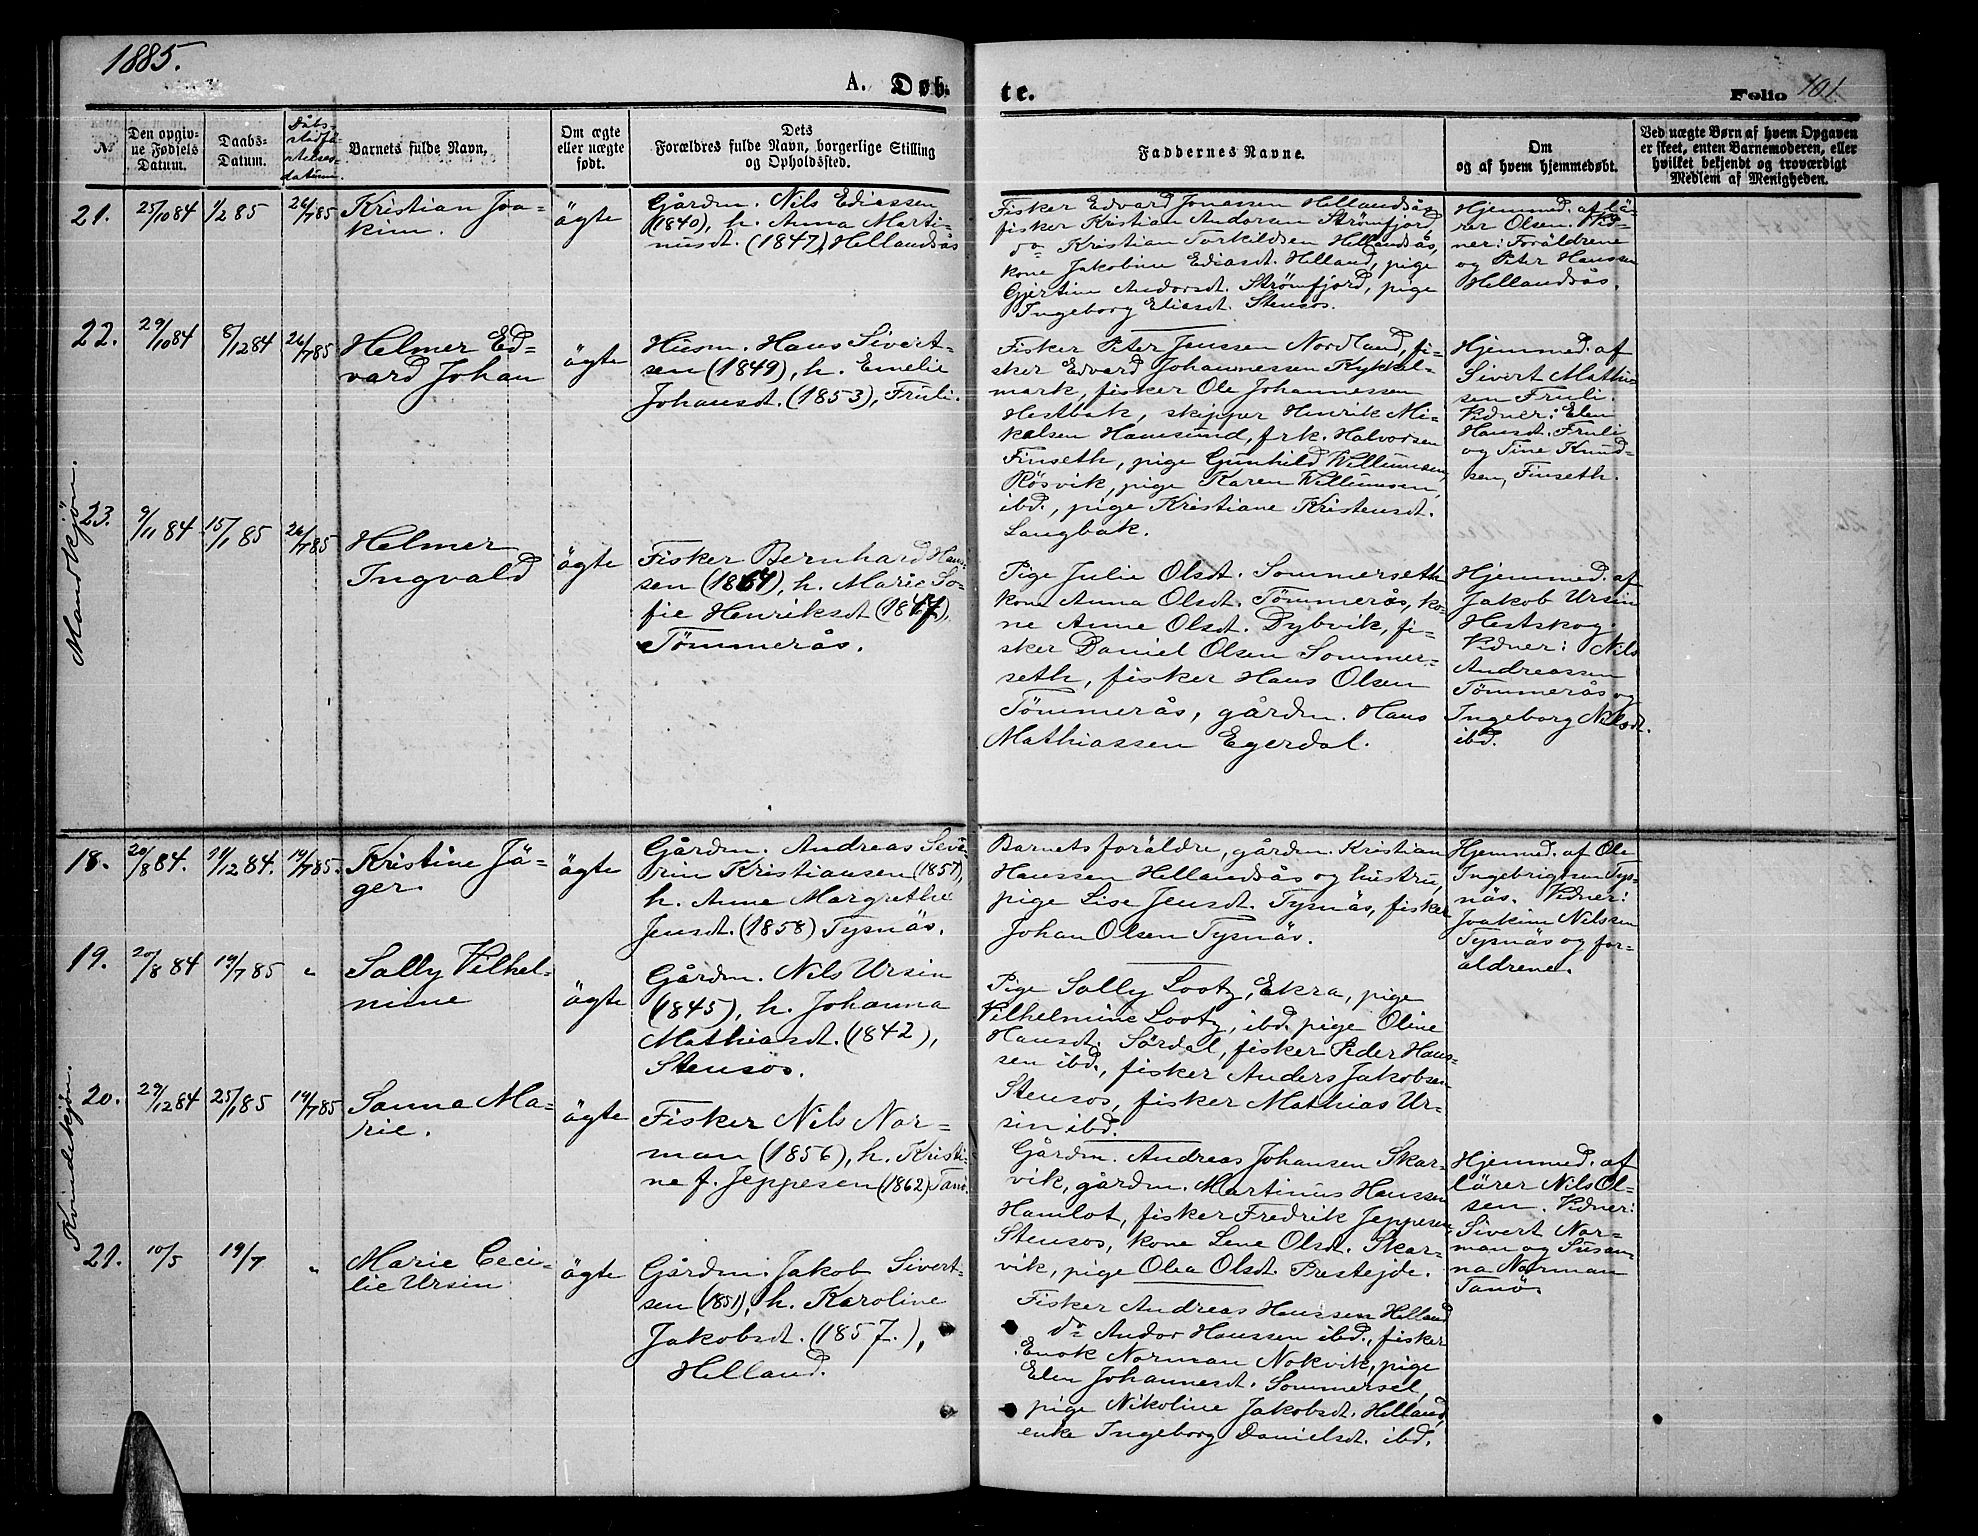 1885.
A. Døb-
te.
Folio 101.
№
Den opgiv-
ne Fødsels
Datum.
Daabs-
Datum.
Dåbs-
stadfæ-
stelses-
datum.
Barnets fulde Navn,
Om ægte
eller uægte
født.
Dets
Forældres fulde Navn, borgerlige Stilling
og Opholdssted.
Faddernes Navne.
Om
og af hvem hjemmedøbt.
Ved uægte Børn af hvem Opgaven
er skeet, enten Barnemoderen, eller
hvilket bekjendt og troværdigt
Medlem af Menigheden.
Mandkjön.
21.
25/10 84
1/2 85
26/7 85
Kristian Joa-
kim.
ägte
Gårdm. Nils Ediassen
(1840), h. Anna Marti-
nusdt. (1847), Hellandsås
Fisker Edvard Jonassen Hellandsås,
fisker Kristian Andorsen Strömfjord,
do Kristian Torkildsen Hellandsås,
kone Jakobine Ediasdt. Helland, pige
Gjertine Andorsdt. Strömfjord, pige
Ingeborg Eliasdt. Stensos.
Hjemmed. af lä-
rer Olsen. Vid-
ner: Foräldrene
og Peter Hanssen
Hellandsås.
22.
29/10 84
8/12 84
26/7 85
Helmer Ed-
vard Johan
ägte
Husm. Hans Sivert-
sen (1849), h. Emelie
Johansdt. (1853), Fruli.
Fisker Peter Jenssen Nordland, fi-
sker Edvard Johannessen Kykkel-
mark, fisker Ole Johannessen
Hestbak, skipper Henrik Mi-
kalsen Hamsund, frk. Halvorsen
Finseth, pige Gunhild Willumsen,
Rösvik, pige Karen Willumsen,
ibd., pige Kristiane Kristensdt.
Langbak.
Hjemmed. af
Sivert Mathi-
sen Fruli.
Vidner: Elen
Hansdt. Fruli
og Tine Knud-
sen, Finseth.
23.
9/11 84
15/1 85
26/7 85
Helmer
Ingvald
ägte
Fisker Bernhard Han-
sen (1861), h. Marie So-
fie Henriksdt (1847),
Tömmerås.
Pige Julie Olsdt. Sommerseth
kone Anna Olsdt. Tömmerås, ko-
ne Anne Olsdt. Dybvik, fi-
sker Daniel Olsen Sommer-
seth, fisker Hans Olsen
Tömmerås, gårdm. Hans
Mathiassen Egerdal.
Hjemmed. af
Jakob Ursin
Hestskog.
Vidner: Nils
Andreassen
Tömmerås og
Ingeborg Nilsdt.
ibd.
Kvindekjön.
18.
20/8 84.
14/12 84.
19/7 85.
Kristine Jä-
ger.
ägte
Gårdm. Andreas Seve-
rin Kristiansen (1857),
h. Anne Margrethe
Jensdt. (1858) Tysnäs.
Barnets foräldre, gårdm. Kristian
Hanssen Hellandsås og hustru,
pige Lise Jensdt. Tysnäs, fisker
Johan Olsen Tysnäs.
Hjemmed. af Ole
Ingebrigtsen Tys-
näs. Vidner:
Joakim Nilssen
Tysnäs og for-
äldrene.
19.
20/8 84
19/7 85
"
Sally Vilhel-
mine
ägte
Gårdm. Nils Ursin
(1845), h. Johanna
Mathiasdt. (1842),
Stensos.
Pige Sally Lootz, Ekra, pige
Vilhelmine Lootz, ibd. pige Oline
Hansdt. Sördal, fisker Peder Hans-
sen ibd., fisker Anders Jakobsen
Stensos, fisker Mathias Ur-
sin ibd.
20.
29/12 84
25/1 85
19/7 85
Sanna Ma-
rie.
ägte
Fisker Nils Nor-
man (1856), h. Kristi-
ne f. Jeppesen (1862) Tanö.
Gårdm. Andreas Johansen Skar-
vik, gårdm. Martinus Hanssen
Hamlot, fisker Fredrik Jeppesen,
Stensos, kone Lene Olsdt. Skar-
vik, pige Olea Olsdt. Prestejde.
Hjemmed. af
lärer Nils Ol-
sen. Vidner:
Sivert Nor-
man og Susan-
na Norman
Tanö.
21.
10/5
19/7
"
Marie Ceci-
lie Ursin
ägte
Gårdm. Jakob Sivert-
sen (1851), h. Karoline
Jakobsdt. (1857.),
Helland.
Fisker Andreas Hanssen Helland
do Andor Hanssen ibd., fisker
Enok Norman Nokvik, pige
Elen Johannesdt. Sommersel,
pige Nikoline Jakobsdt. Helland,
enke Ingeborg Danielsdt. ibd.